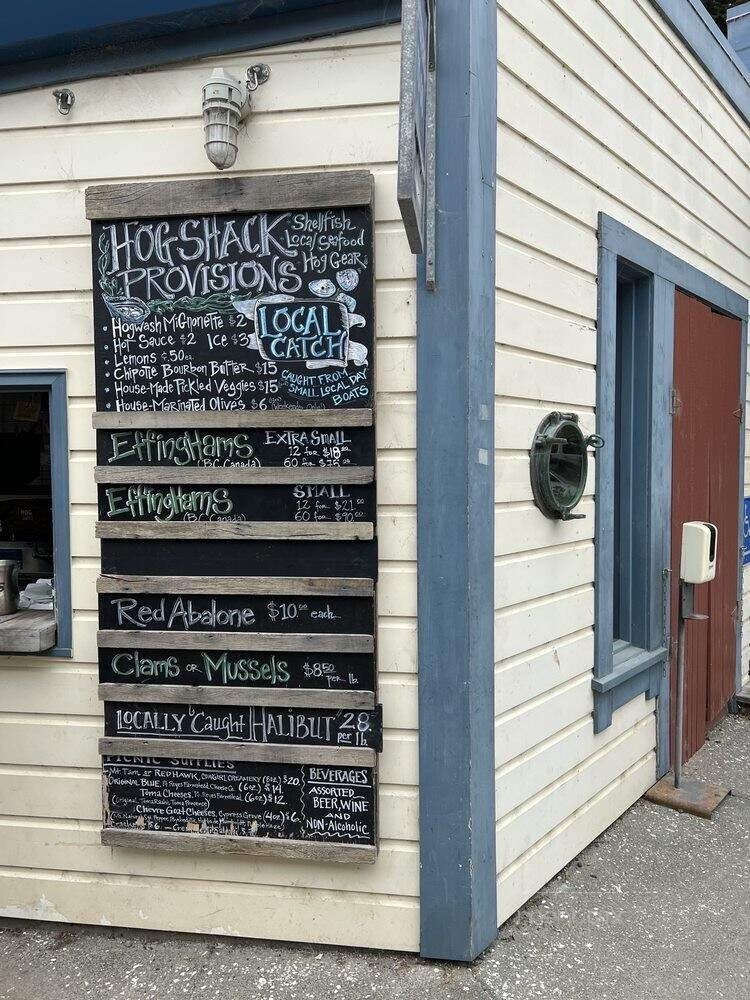 HOG SHACK
PROVISIONS
Shellfish
Local Seafood
Hog Gear
• Hogwash Mignonette $2
• Hot Sauce $2 Ice $3
• Lemons ¢.50 ea.
• Chipotle Bourbon Butter $15
• House-Made Pickled Veggies $15
• House-Marinated Olives $6
LOCAL
CATCH
CAUGHT FROM
SMALL LOCAL DAY
BOATS
Effinghams
(B.C. Canada)
EXTRA SMALL
12 for $18.00
60 for $75.00
Effinghams
(B.C. Canada)
SMALL
12 for $21.00
60 for $90.00
Red Abalone $10.00 each
Clams or Mussels $8.50 per lb.
LOCALLY Caught HALIBUT 28 per lb.
PICNIC SUPPLIES
Mt. Tam or RED HAWK, COWGIRL CREAMERY (8oz.) $20
ORIGINAL BLUE, Pt. Reyes Farmstead Cheese Co. (6oz) $14
Toma Cheeses, Pt. Reyes Farmstead, (6oz) $12
(Original, TomaRashi, Toma Provence)
Chevre Goat Cheeses, Cypress Grove (4oz) $6
BEVERAGES
ASSORTED
BEER, WINE
AND
NON-Alcoholic